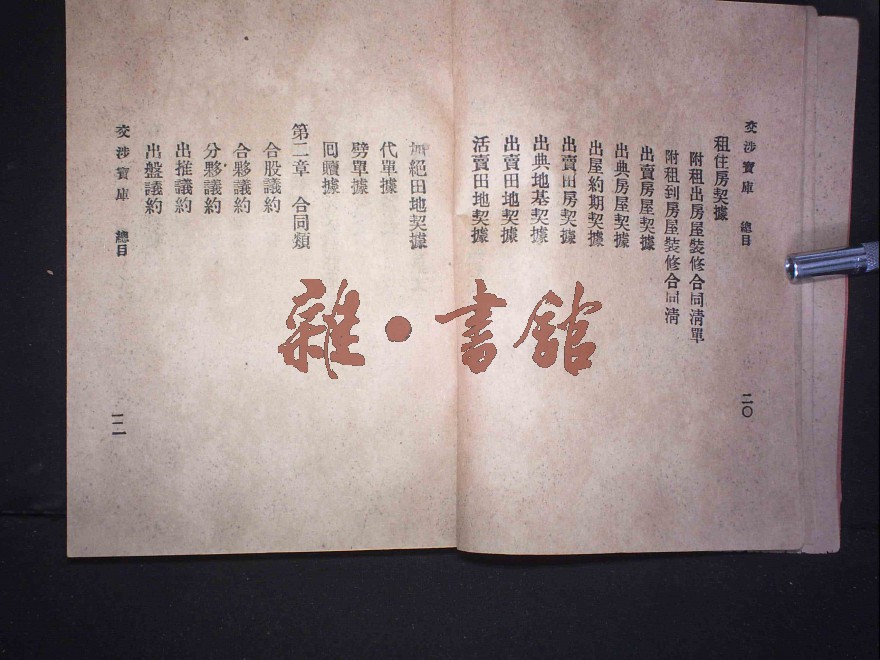 交涉寶庫 總目 二〇
租住房契據
附租出房屋裝修合同清單
附租到房屋裝修合同清
出賣房屋契據
出典房屋契據
出屋約期契據
出賣田房契據
出典地基契據
出賣田地契據
活賣田地契據
絕田地契據
代單據
劈單據
回贖據
第二章 合同類
合股議約
合夥議約
分夥議約
出推議約
出盤議約
交涉寶庫 總目
雜·書館